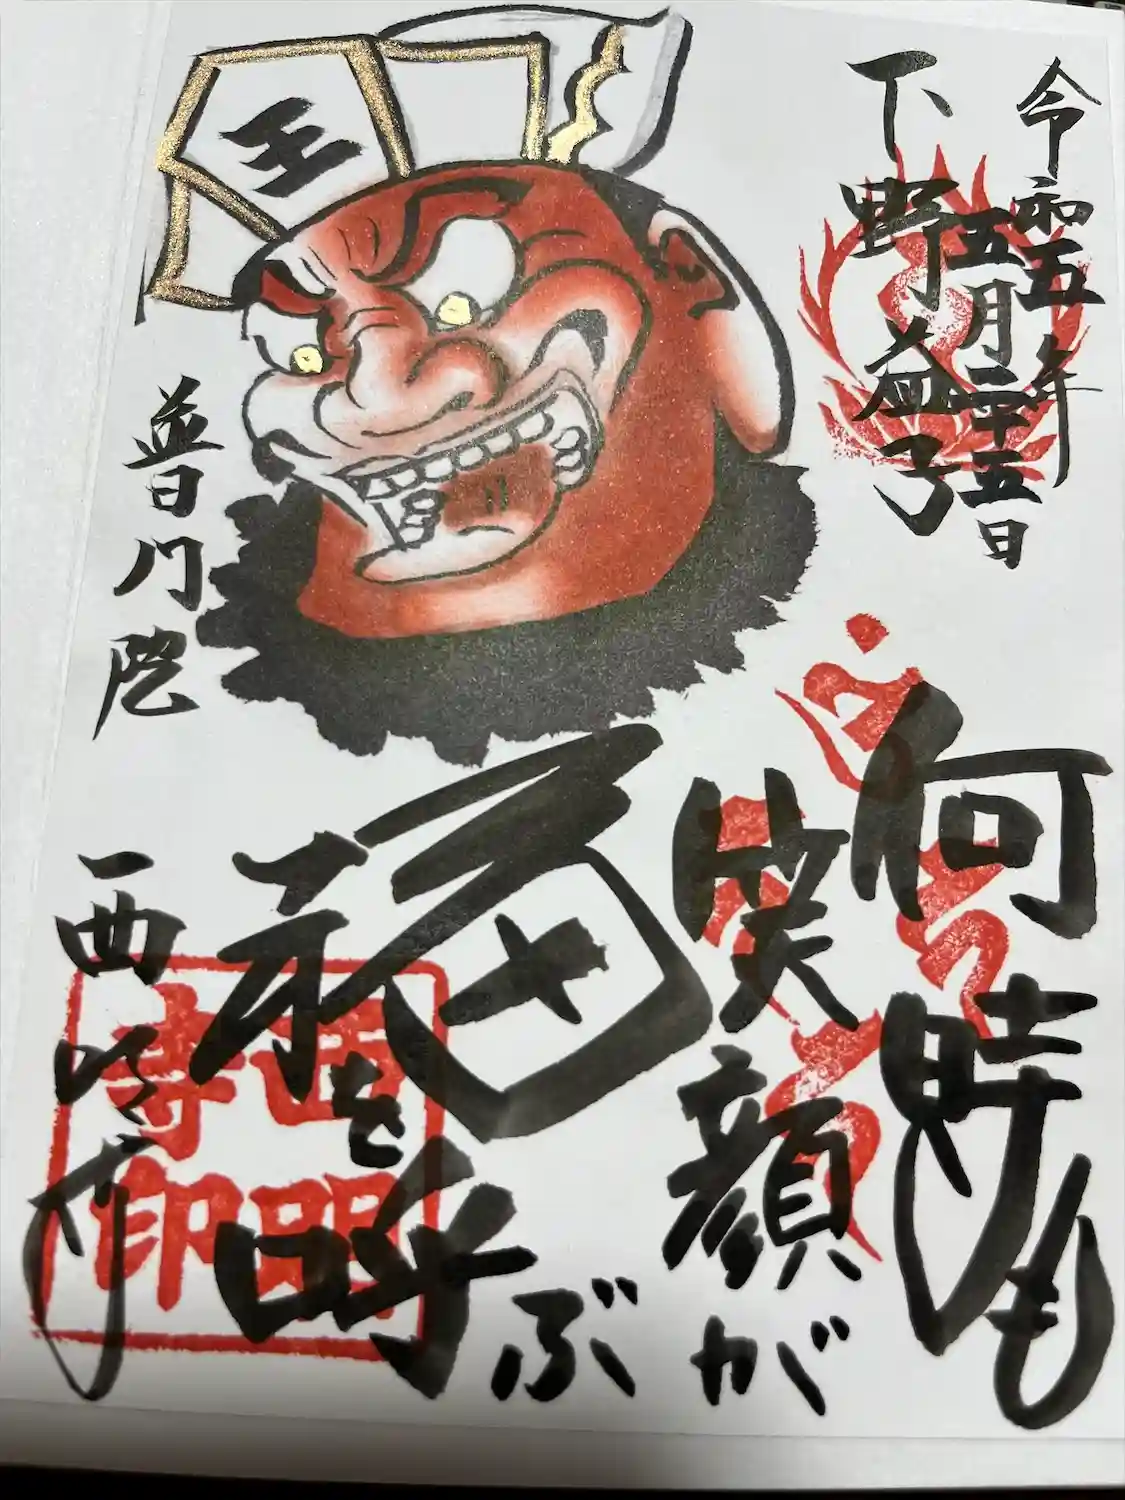 令和五年
五月二十五日
下野益子
何時も
笑顔が
福を呼ぶ
王
普門院
西明寺
西明
寺印